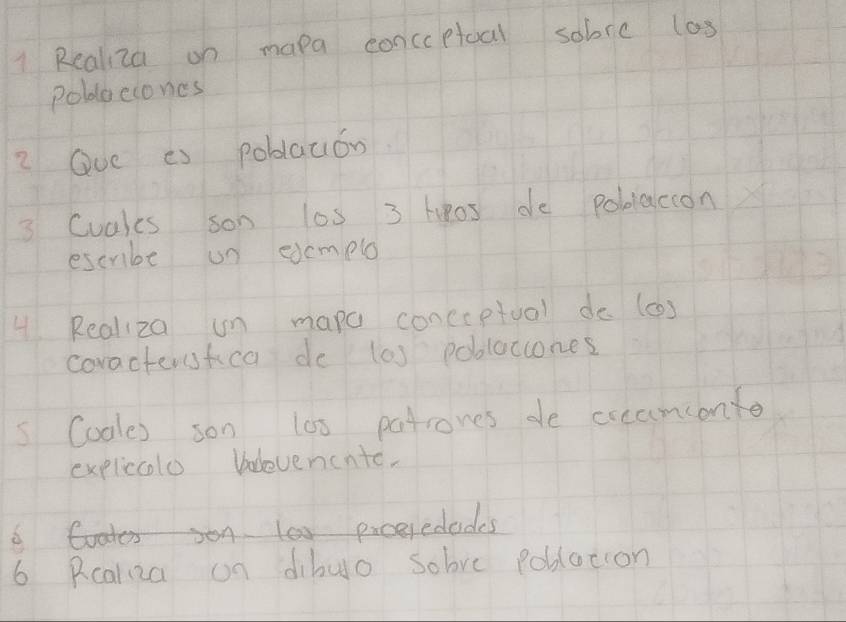 1 Realiza un mapa conceptual sobre las
Poblaciones
2 Que es población
3 Cuales son los 3 tipos de poblaccon
escribe un ejemplo
4 Realiza un mapa conceptual de las
caracteristica de las poblaccones
5 Cuales son los patrones de
explicalo
6 Cuales son las propiedades
6 Realiza un dibujo sobre Poblacion